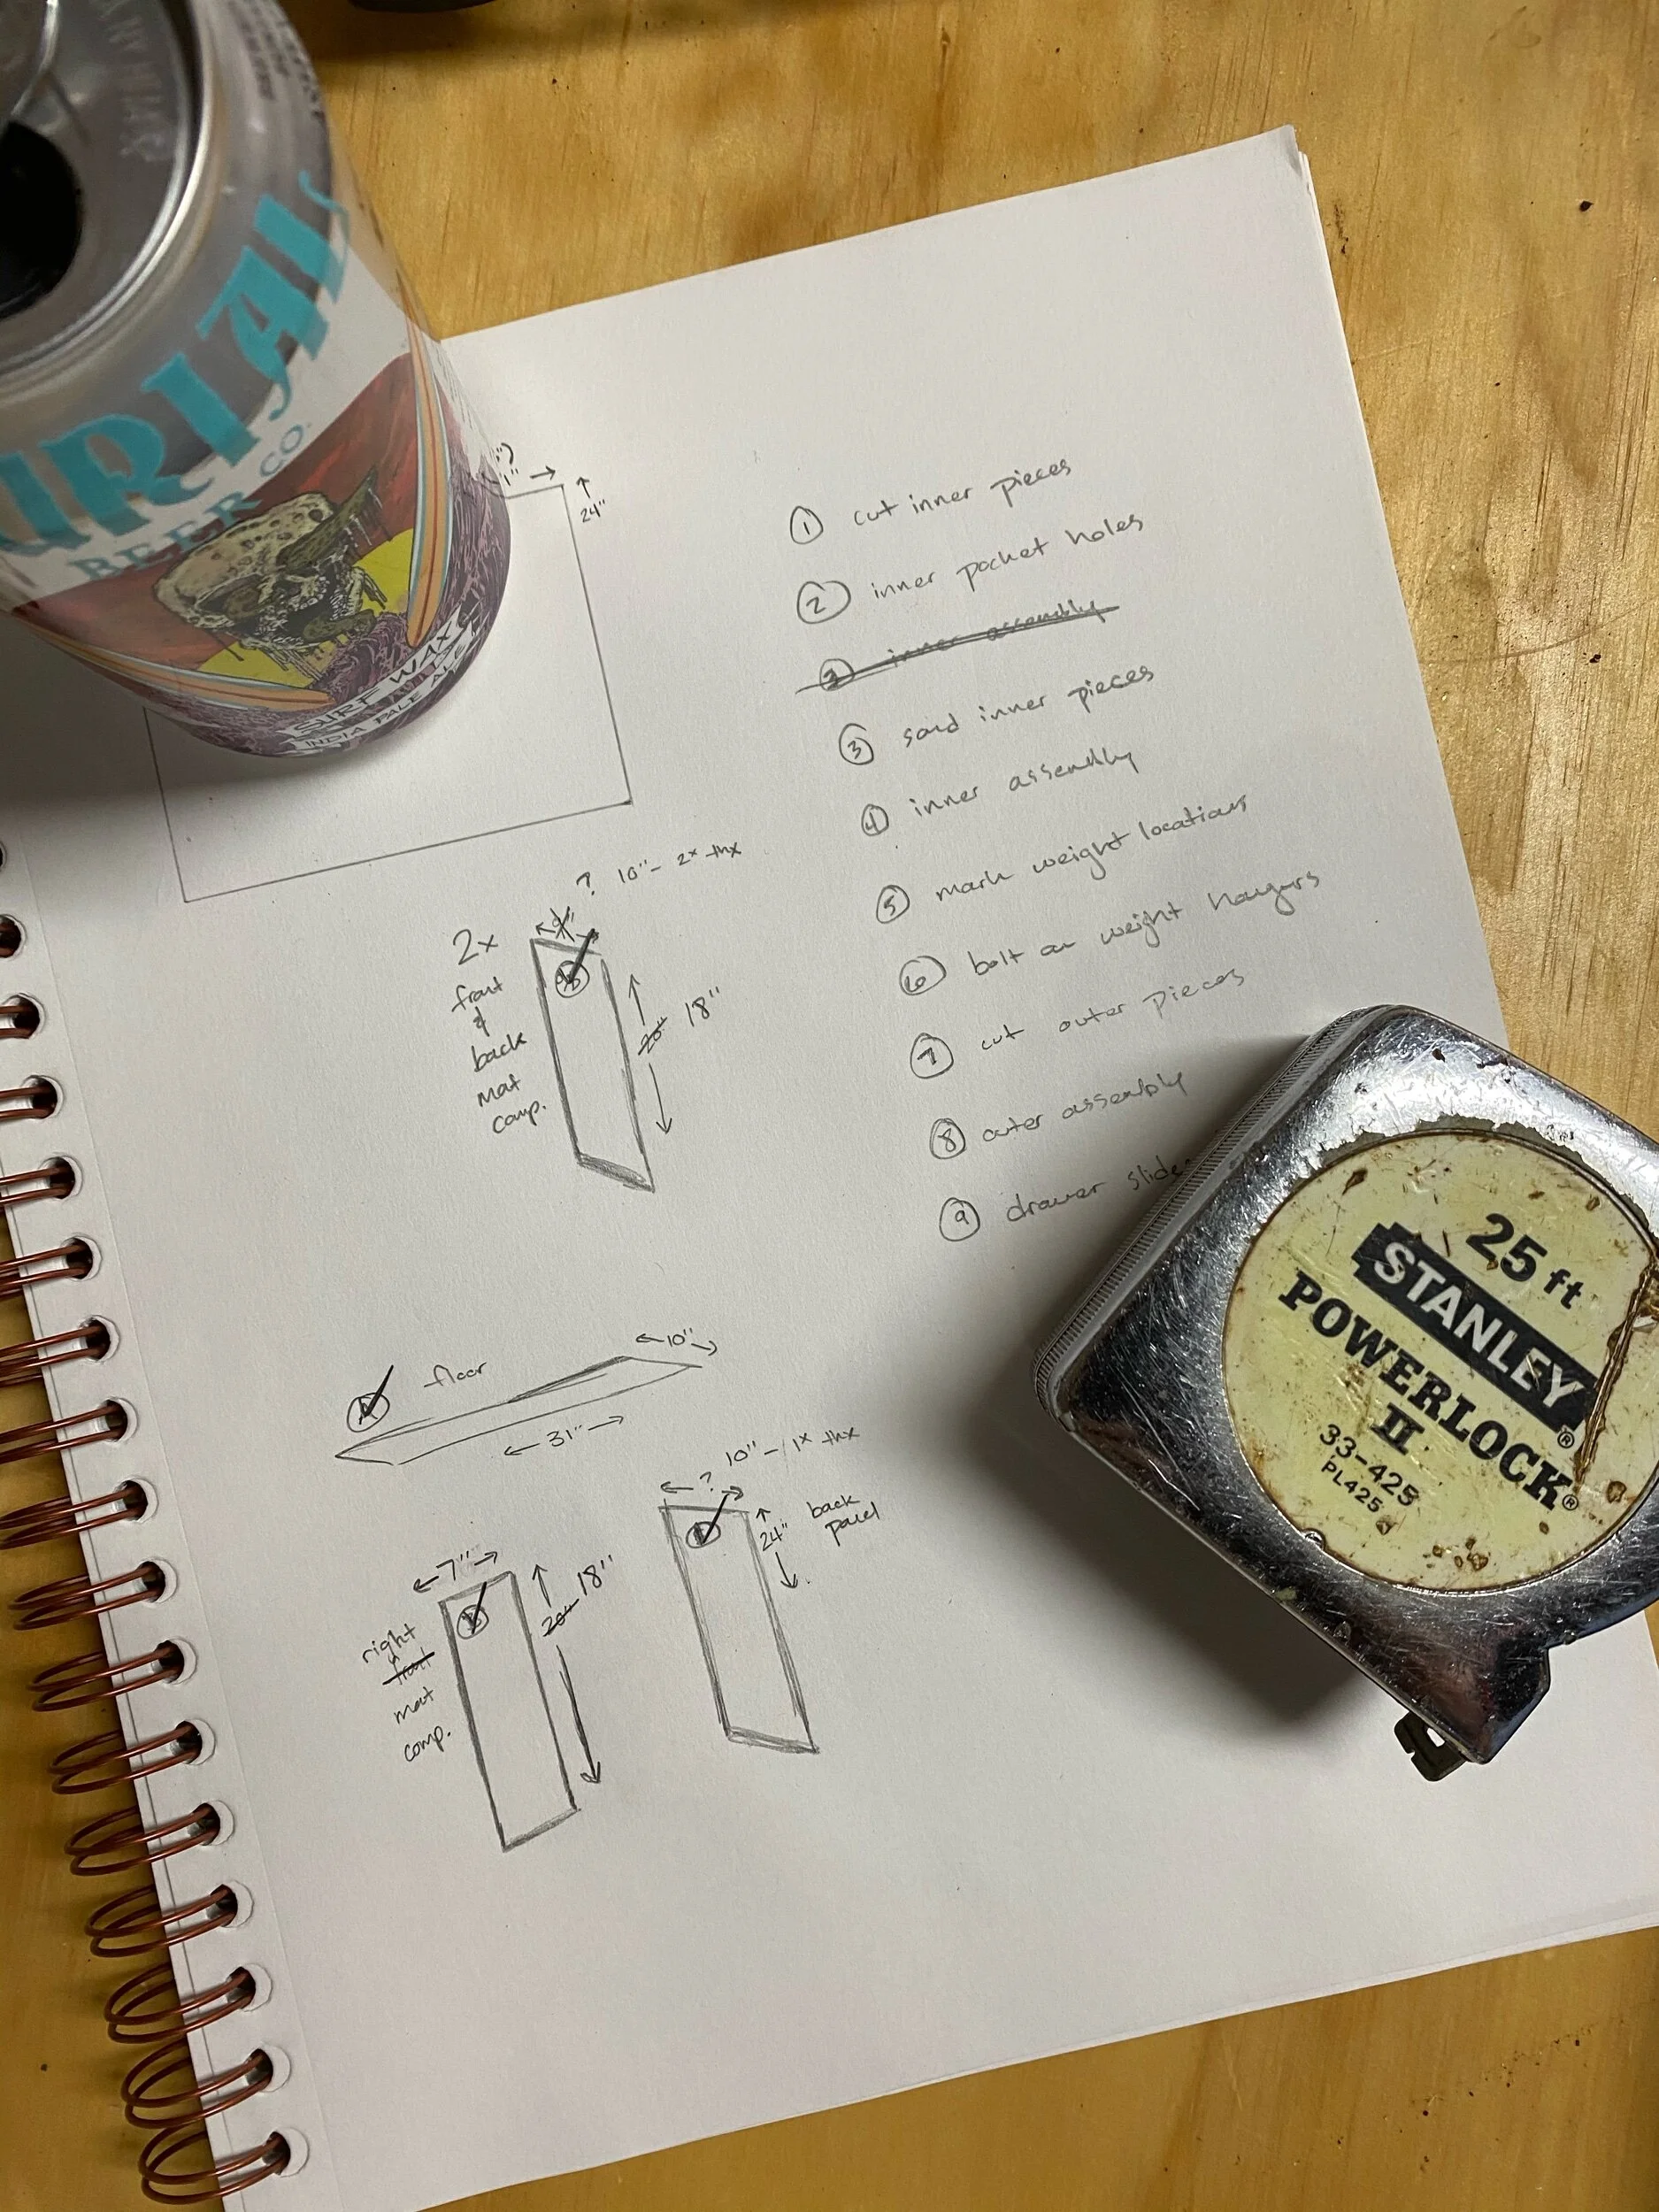 URIAL
BEER CO.
SURF WAX
INDIA PALE ALE
24"
① cut inner pieces
② inner pocket holes
③ inner assembly
③ sand inner pieces
④ inner assembly
⑤ mark weight locations
⑥ bolt on weight hangers
⑦ cut outer pieces
⑧ outer assembly
⑨ drawer slides
? 10"- 2x thx
2x
front
&
back
mat
comp.
20" 18"
floor
10"
31"
? 10"- 1x thx
24"
back
panel
7"
20" 18"
right
front
mat
comp.
25 ft
STANLEY®
POWERLOCK®
II
33-425
PL425